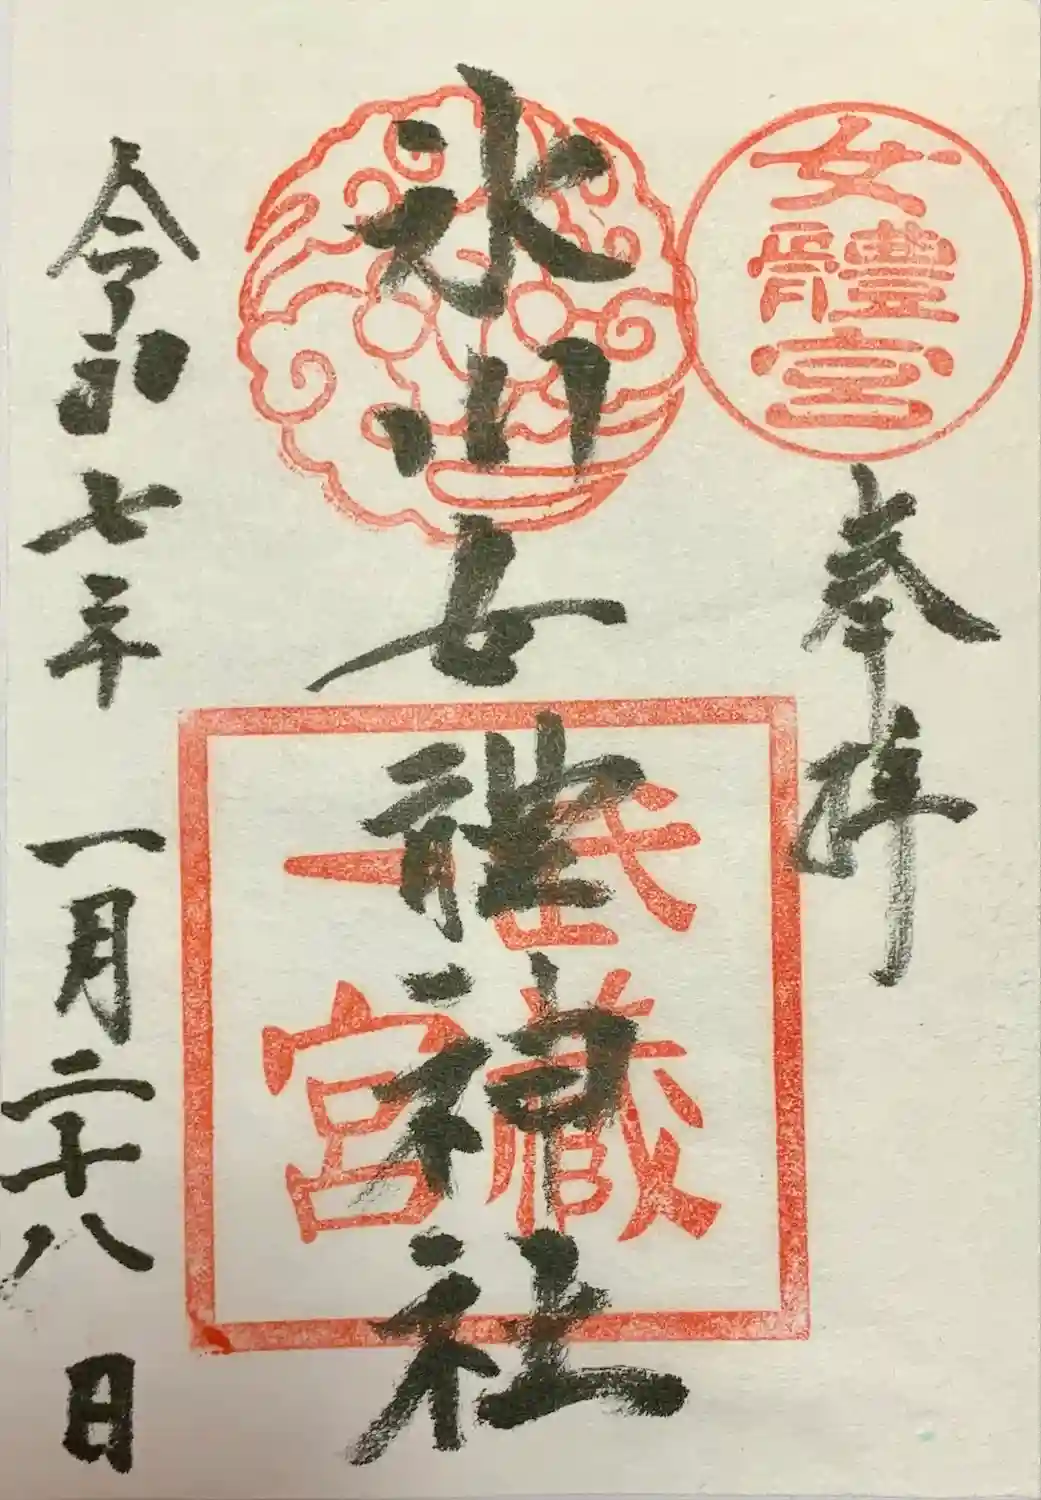 女體宮
奉拝
氷川女體神社
武藏
一宮
令和七年 一月二十八日